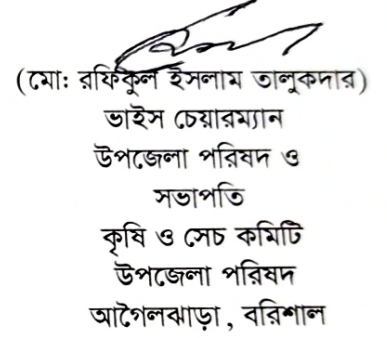 (মো: রফিকুল ইসলাম তালুকদার)
ভাইস চেয়ারম্যান
উপজেলা পরিষদ ও
সভাপতি
কৃষি ও সেচ কমিটি
উপজেলা পরিষদ
আগৈলঝাড়া, বরিশাল